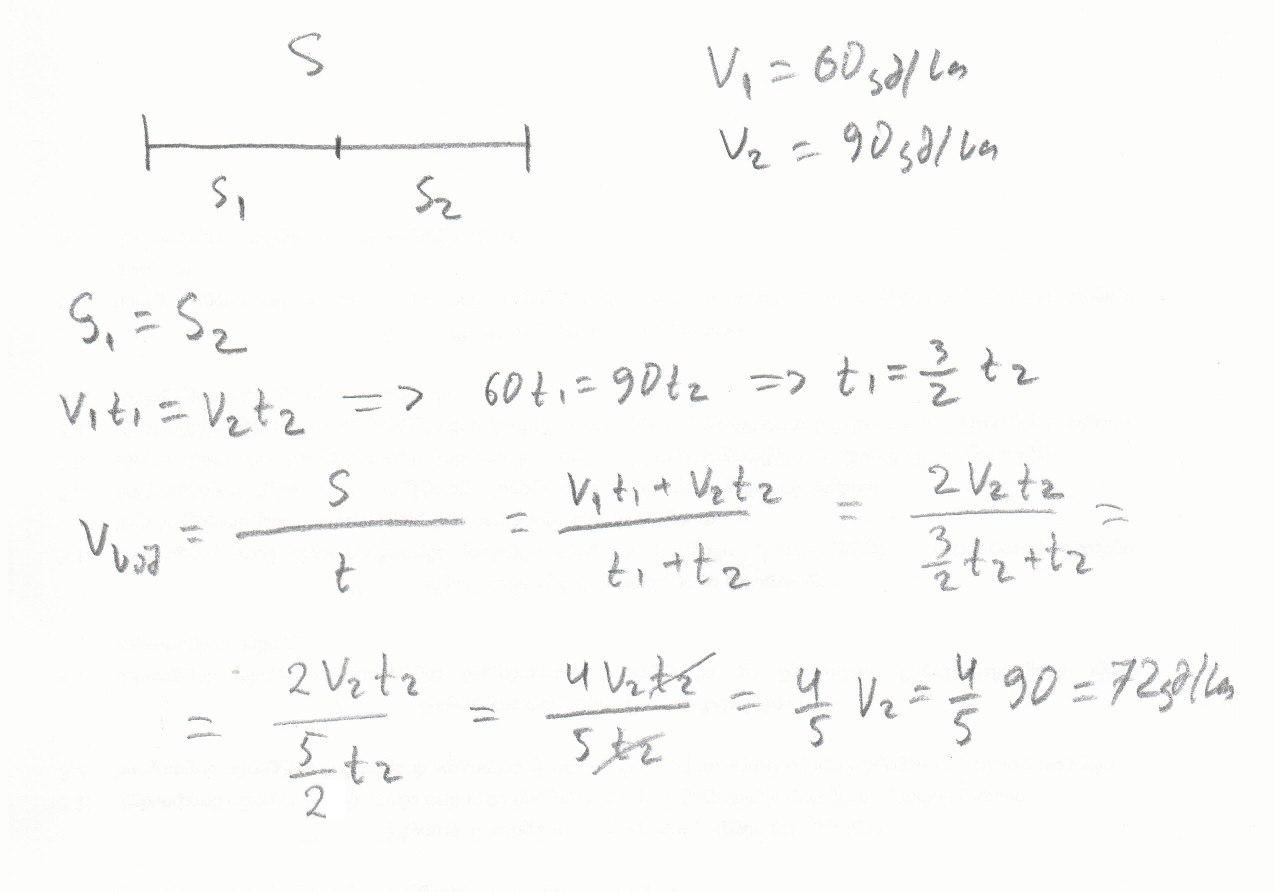 S
V₁ = 60 კმ/სთ
V₂ = 90 კმ/სთ
S₁ S₂
S₁ = S₂
V₁t₁ = V₂t₂ => 60t₁ = 90t₂ => t₁ = 3/2 t₂
V = S/t = (V₁t₁ + V₂t₂)/(t₁ + t₂) = 2V₂t₂/(3/2 t₂ + t₂) =
= 2V₂t₂/(5/2 t₂) = 4V₂t₂/5t₂ = 4/5 V₂ = 4/5 90 = 72 კმ/სთ